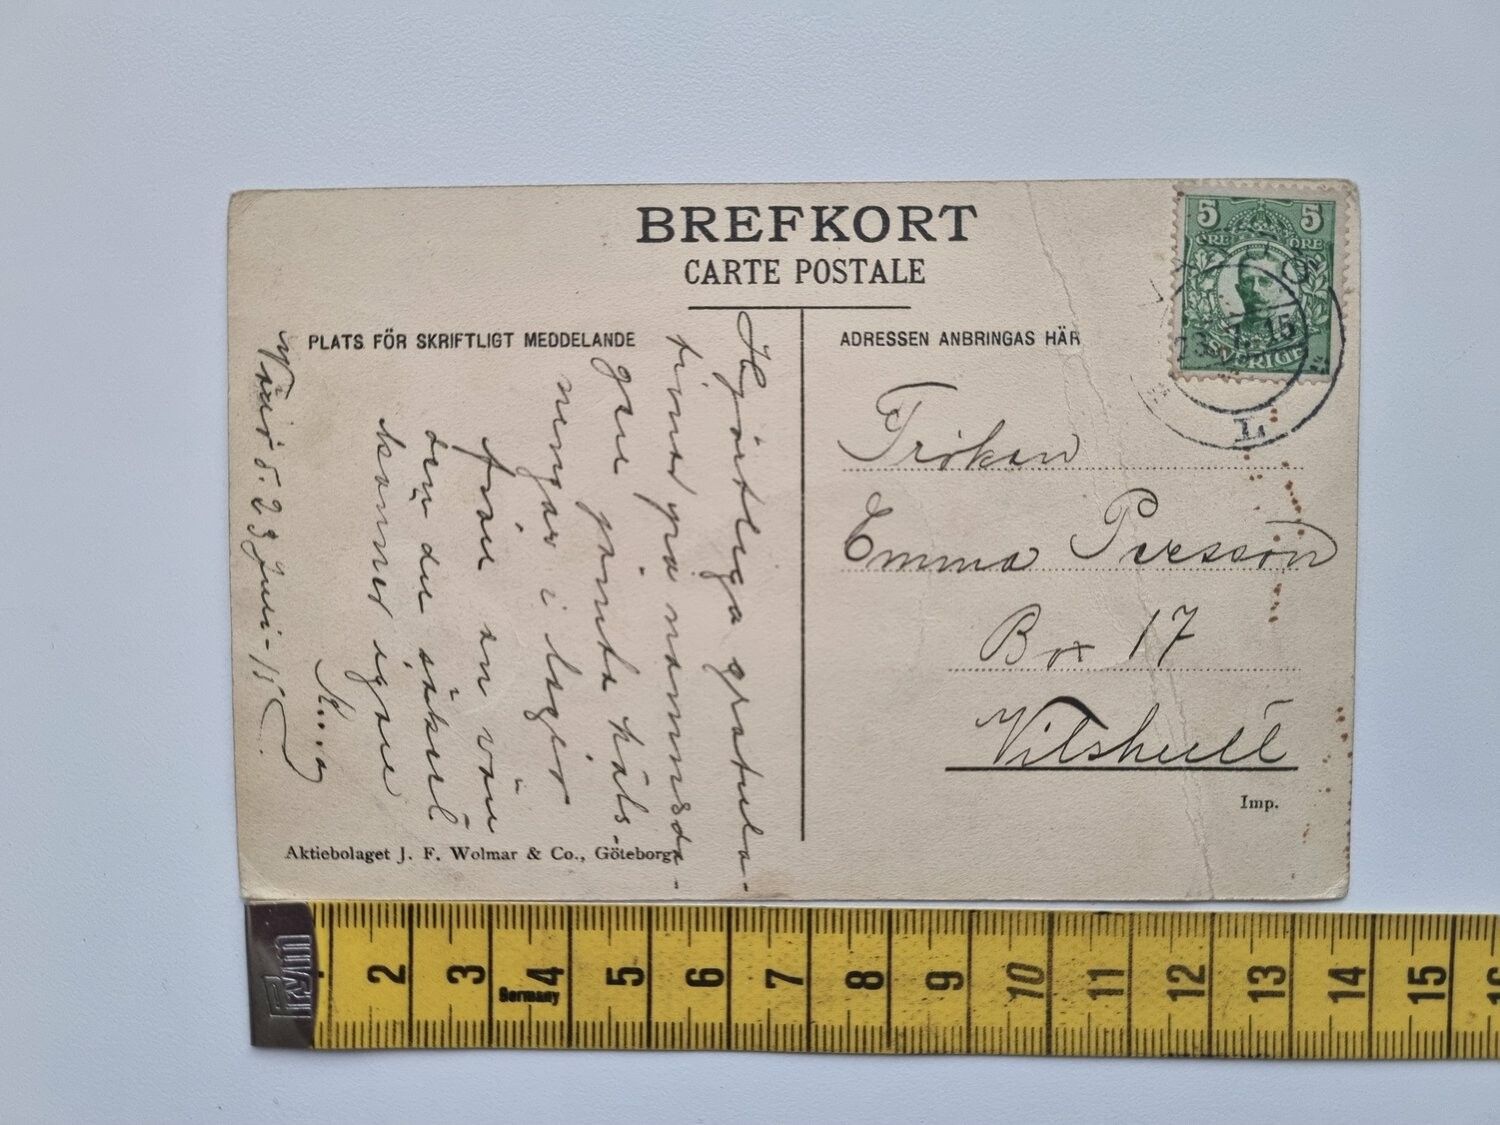 BREFKORT
CARTE POSTALE
PLATS FÖR SKRIFTLIGT MEDDELANDE
ADRESSEN ANBRINGAS HÄR
5 5
ÖRE ÖRE
SVERIGE
23.7.15
L
Hjärtliga gratula-
tioner på namnsda-
gen jämte häls-
ningar i
från en vän
den du säkert
känner igen
d. 23 Juli - 15
Fröken
Emma Persson
Box 17
Vilshult
Imp.
Aktiebolaget J. F. Wolmar & Co., Göteborg.
Prym
2 3 4 5 6 7 8 9 10 11 12 13 14 15 16
Germany